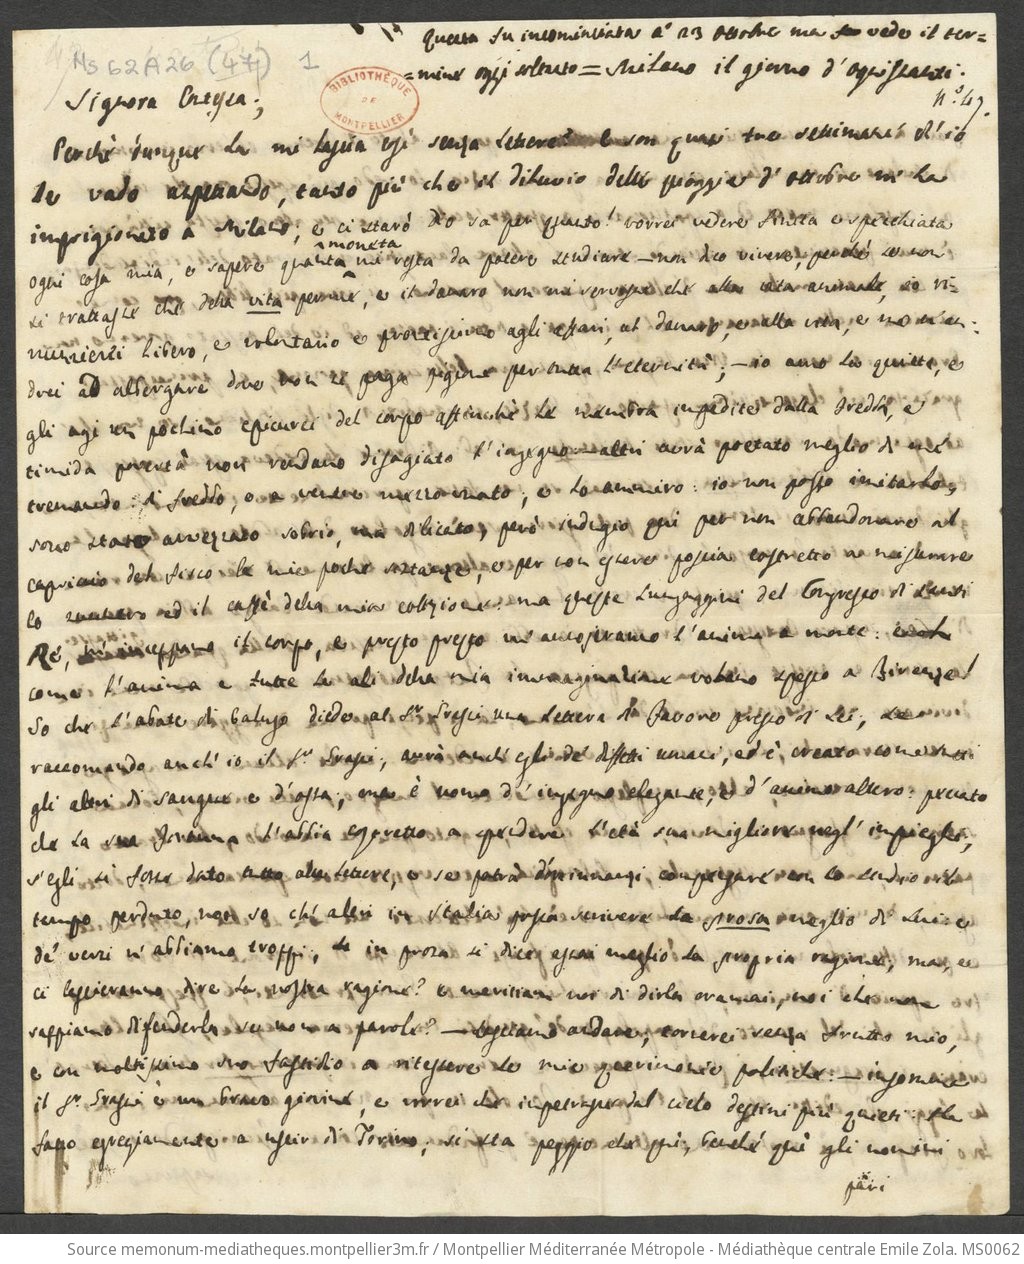 Questa fu incominciata a' 23 ottobre ma vedo il ter=
=mine oggi soltanto = Milano il giorno d'Ognissanti.
Ms 62 A 26 (47) 1
BIBLIOTHÈQUE DE MONTPELLIER
N.º 47.
Signora Contessa;
Perchè dunque La mi lascia così senza lettere? e son quasi tre settimane ch'io
le vado aspettando, tanto più che il diluvio delle pioggie d'ottobre mi ha
imprigionato a Milano; e ci starò Dio sa per quanto! vorrei vedere finita e specchiata
moneta
ogni cosa mia, e sapere quanta mi resta da potere studiare — non dico vivere, perchè se non
si trattasse che della vita per me, e il danaro non mi servisse che alla vita animale, io ri=
nunzierei libero, e volontario e prontissimo agli affari, al danaro, e alla vita, e me n'an=
drei ad albergare dove non si paga pigione per tutta l'eternità; — io amo la quiete, e
gli agi un pochino epicurei del corpo affinchè le membra impedite dalla fredda, e
timida povertà non rendano disagiato l'ingegno — altri avrà poetato meglio di me
tremando di freddo, o a ventre mezzo vuoto, e lo ammiro: io non posso imitarlo,
sono stato avvezzato sobrio, ma dilicato; però indugio qui per non abbandonare al
capriccio del fisco le mie poche sostanze, e per non essere poscia costretto a misurare
lo zucchero ed il caffè della mia colezione: ma queste lungaggini del Congresso di questi
Re, il corpo, e presto presto m'accosteranno l'anima a morte:
come l'anima e tutte le ali della mia immaginazione volano spesso a Firenze!
So che l'abate di Caluso diede al S.r Grassi una lettera di favore presso di Lei, Le
raccomando anch'io il S.r Grassi; avrà anch'egli de' difetti umani, ed è creato come tutti
gli altri di sangue e d'ossa; ma è uomo d'ingegno elegante, e d'animo altero: peccato
che la sua fortuna l'abbia costretto a spendere l'età sua migliore negl'impieghi;
s'egli si fosse dato alle lettere, e se potrà d'or innanzi compensare con lo studio il
tempo perduto, non so chi altri in Italia possa scrivere la prosa meglio di lui: e
de' versi n'abbiamo troppi; in prosa si dice assai meglio la propria ragione; ma, e
ci lasceranno dire la nostra ragione? e meritiam noi di dirla oramai, noi che non
sappiamo difenderla se non a parole? — Lasciamo andare; correrei senza frutto mio,
e con moltissimo suo fastidio a ritessere le mie querimonie politiche: — insomma
il S.r Grassi è un bravo giovine, e vorrei che impetrasse dal cielo destini più quieti:
fatto egregiamente a uscir di Torino; si sta peggio che quì, benchè quì gli uomini
pari
Source memonum-mediatheques.montpellier3m.fr / Montpellier Méditerranée Métropole - Médiathèque centrale Emile Zola. MS0062